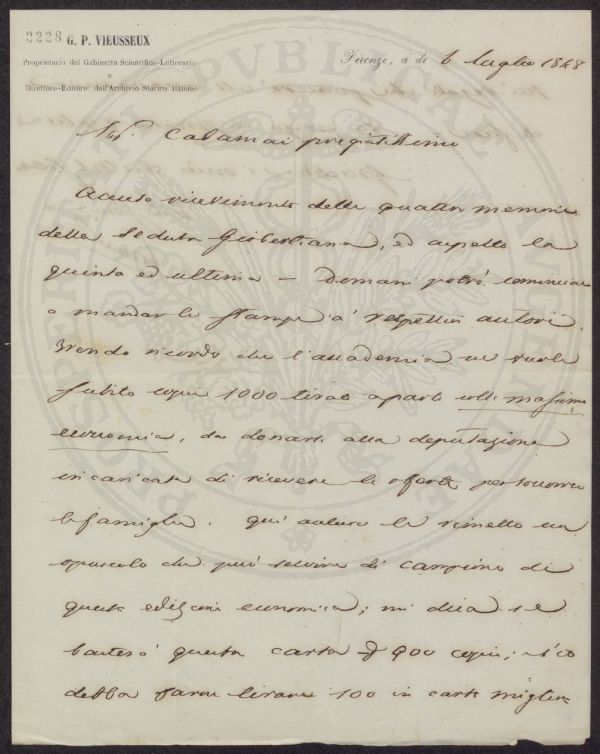 2228 G. P. VIEUSSEUX
Proprietario del Gabinetto Scientifico-Letterario
e
Direttore-Editore dell'Archivio Storico Italiano
Firenze, a dì 6 luglio 1848
Calamai pregiatissimo
Accuso ricevimento delle quattro memorie
della seduta Giobertiana, ed aspetto la
quinta ed ultima — Domani potrò cominciare
a mandar le stampe a' respettivi autori.
Prendo ricordo che l'accademia ne vuole
subito copie 1000 tirate a parte colla massima
economia, da donarsi alla deputazione
incaricata di ricevere le offerte per soccorrere
le famiglie. Qui acluso le rimetto un
opuscolo che può servire di campione di
questa edizione economica; mi dica se
basterà questa carta p 900 copie; e s'io
debba farne tirare 100 in carta migliore
PROSPERITATI PVBLICAE AVGENDAE